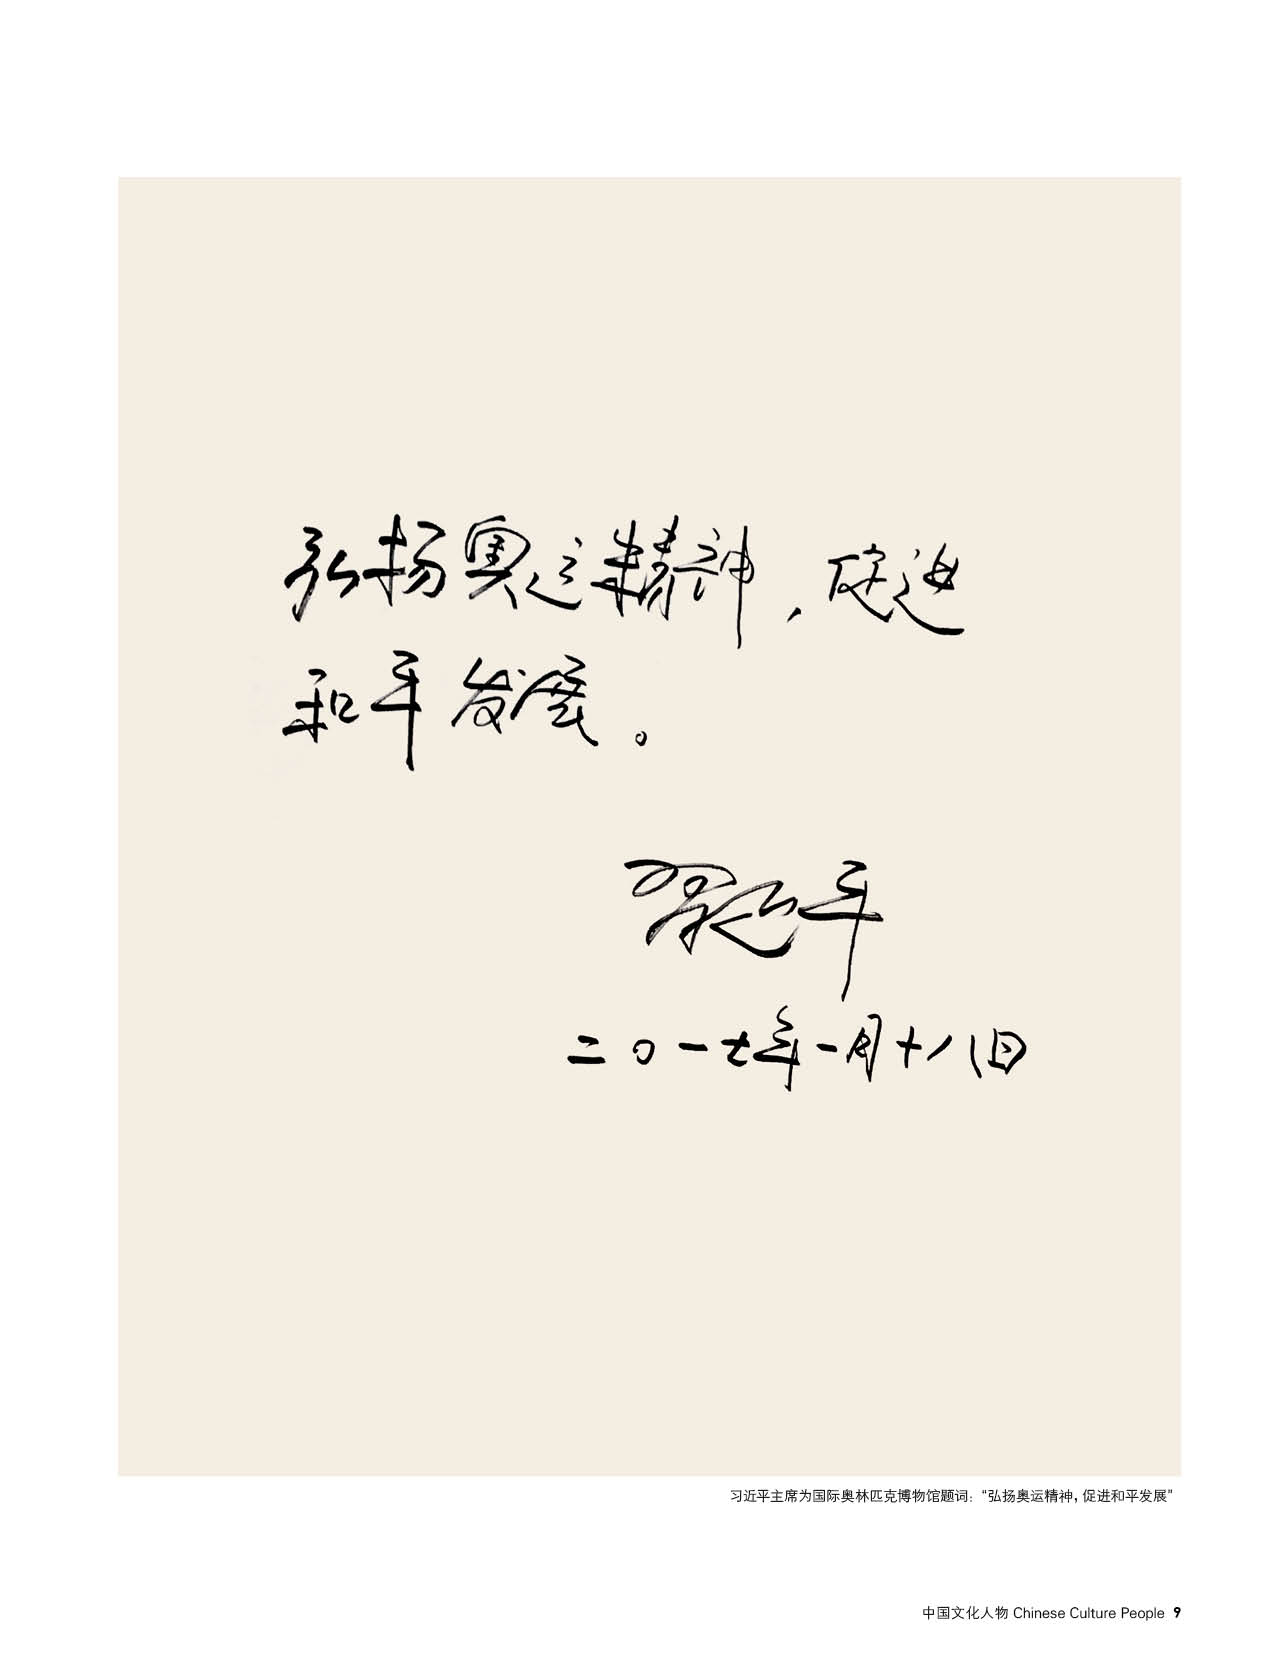 弘扬奥运精神，促进
和平发展。
习近平
二〇一七年一月十八日
习近平主席为国际奥林匹克博物馆题词：“弘扬奥运精神，促进和平发展”
中国文化人物 Chinese Culture People 9